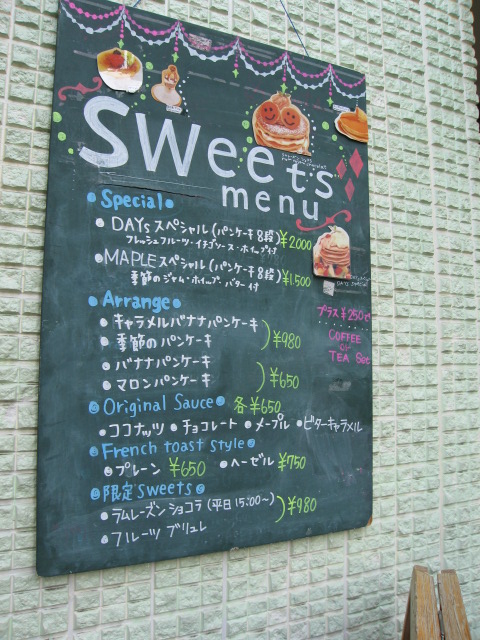 Sweets
menu
Special
DAYsスペシャル(パンケーキ8段) ¥2000
フレッシュフルーツ・イチゴソース・ホイップ付
MAPLEスペシャル(パンケーキ8段) ¥1.500
季節のジャム・ホイップ、バター付
Arrange
キャラメルバナナパンケーキ
季節のパンケーキ
¥980
バナナパンケーキ
マロンパンケーキ
¥650
プラス¥250で
COFFEE
or
TEA Set
Original Sauce 各¥650
ココナッツ チョコレート メープル ビターキャラメル
French toast style
プレーン ¥650 ヘーゼル ¥750
限定sweets
ラムレーズンショコラ(平日15:00〜)
フルーツブリュレ
¥980